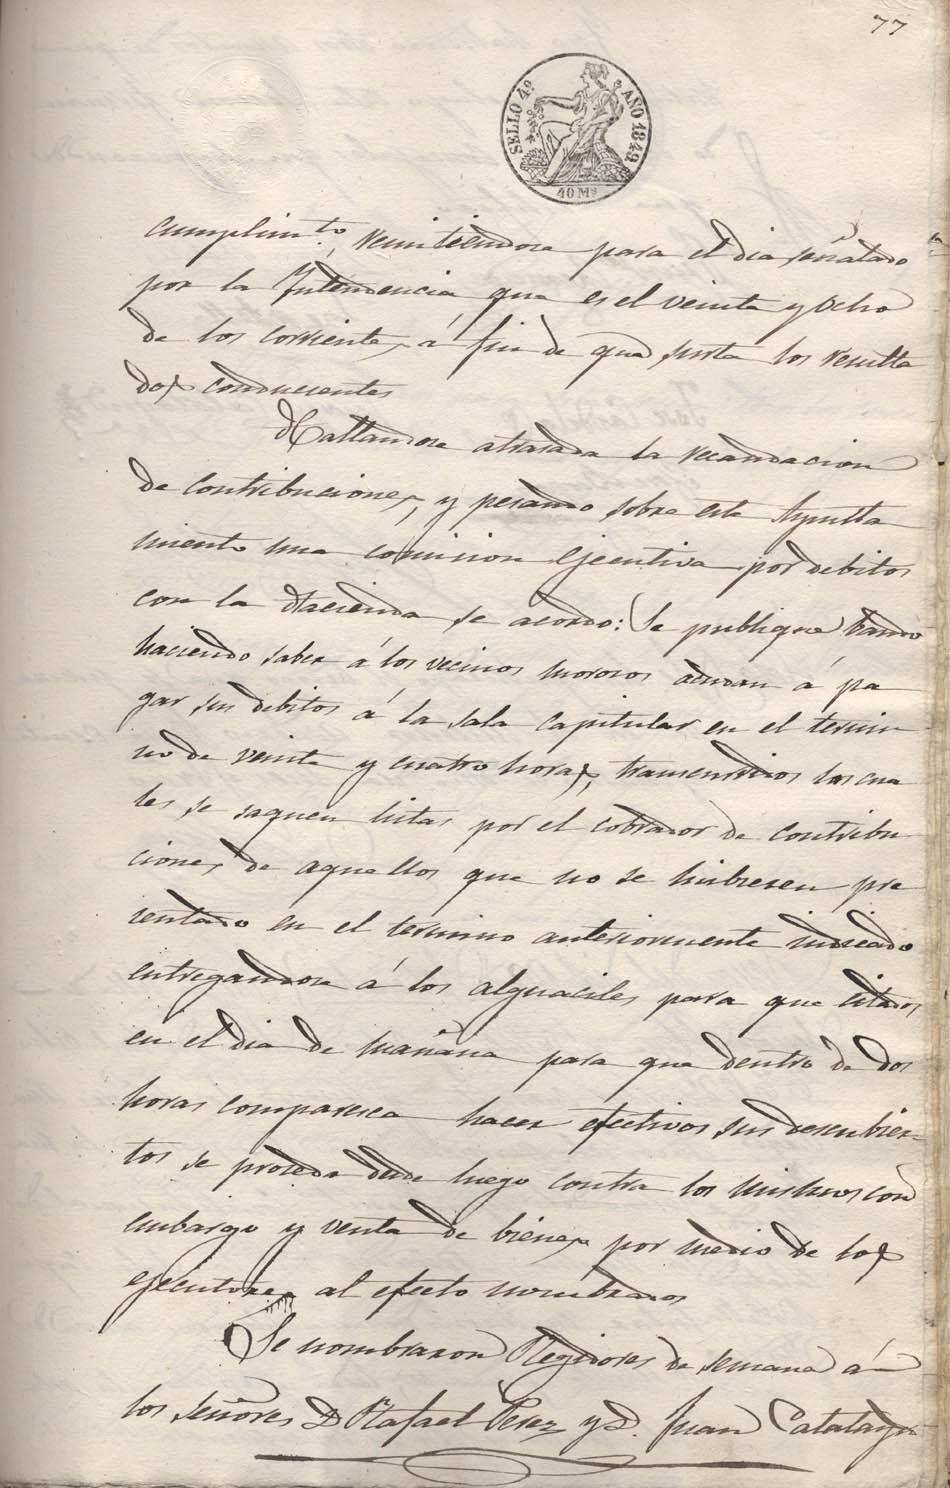 77
SELLO 4º AÑO 1849
40 Ms
cumplimto, remitiendose para el dia señalado
por la Intendencia que es el veinte y ocho
de los corrientes á fin de que surta los resulta
dos conducentes
Hallandose atrasada la recaudacion
de contribuciones, y pesando sobre este Ayunta
miento una comision ejecutiva por debitos
con la Hacienda se acordo: Se publique bando
haciendo saber á los vecinos morosos acudan á pa
gar sus debitos á la sala capitular en el termi
no de veinte y cuatro horas, transcurridos las cua
les se saquen listas por el cobrador de contribu
ciones de aquellos que no se hubiesen pre
sentado en el termino anteriormente indicado
entregandose á los alguaciles para que citados
en el dia de mañana para que dentro de dos
horas comparesca hacer efectivos sus descubier
tos se proceda desde luego contra los mismos con
embargo y venta de bienes por medio de los
ejecutores al efecto nombrados
Se nombraron Regidores de semana á
los Señores D Rafael Perez y D. Juan Catalayu